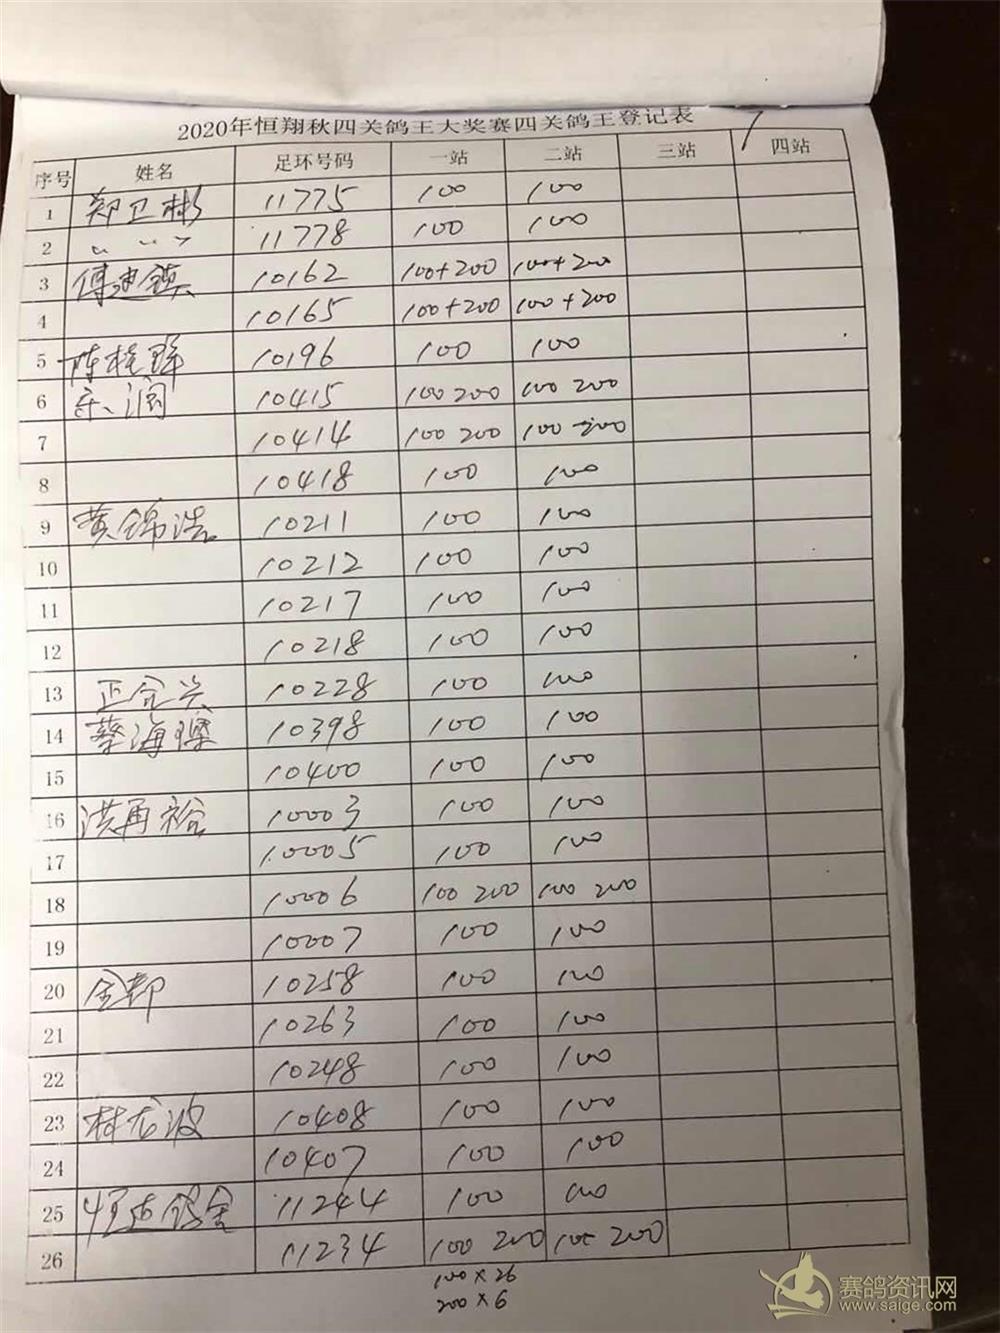 2020年恒翔秋四关鸽王大奖赛四关鸽王登记表
序号 姓名 足环号码 一站 二站 三站 四站
1 郑卫彬 11775 100 100
2 〃 〃 11778 100 100
3 傅建镇 10162 100+200 100+200
4 10165 100+200 100+200
5 陈桂锋 10196 100 100
6 10415 100 200 100 200
7 10414 100 200 100 200
8 10418 100 100
9 黄锦浩 10211 100 100
10 10212 100 100
11 10217 100 100
12 10218 100 100
13 正合兴 10228 100 100
14 蔡海 10398 100 100
15 10400 100 100
16 洪再裕 10003 100 100
17 10005 100 100
18 10006 100 200 100 200
19 10007 100 100
20 金都 10258 100 100
21 10263 100 100
22 10248 100 100
23 林龙波 10408 100 100
24 10407 100 100
25 恒达鸽舍 11244 100 100
26 11234 100 200 100 200
100×26
200×6
赛鸽资讯网
www.saige.com